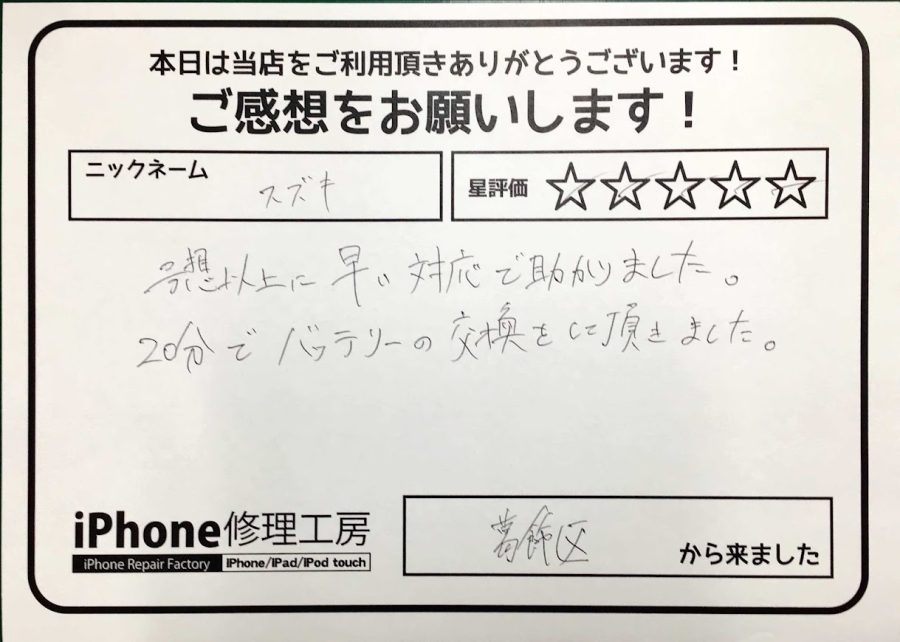 本日は当店をご利用頂きありがとうございます！
ご感想をお願いします！
ニックネーム
スズキ
星評価 ☆☆☆☆☆
予想以上に早い対応で助かりました。
20分でバッテリーの交換をして頂きました。
iPhone修理工房
iPhone Repair Factory iPhone/iPad/iPod touch
葛飾区 から来ました